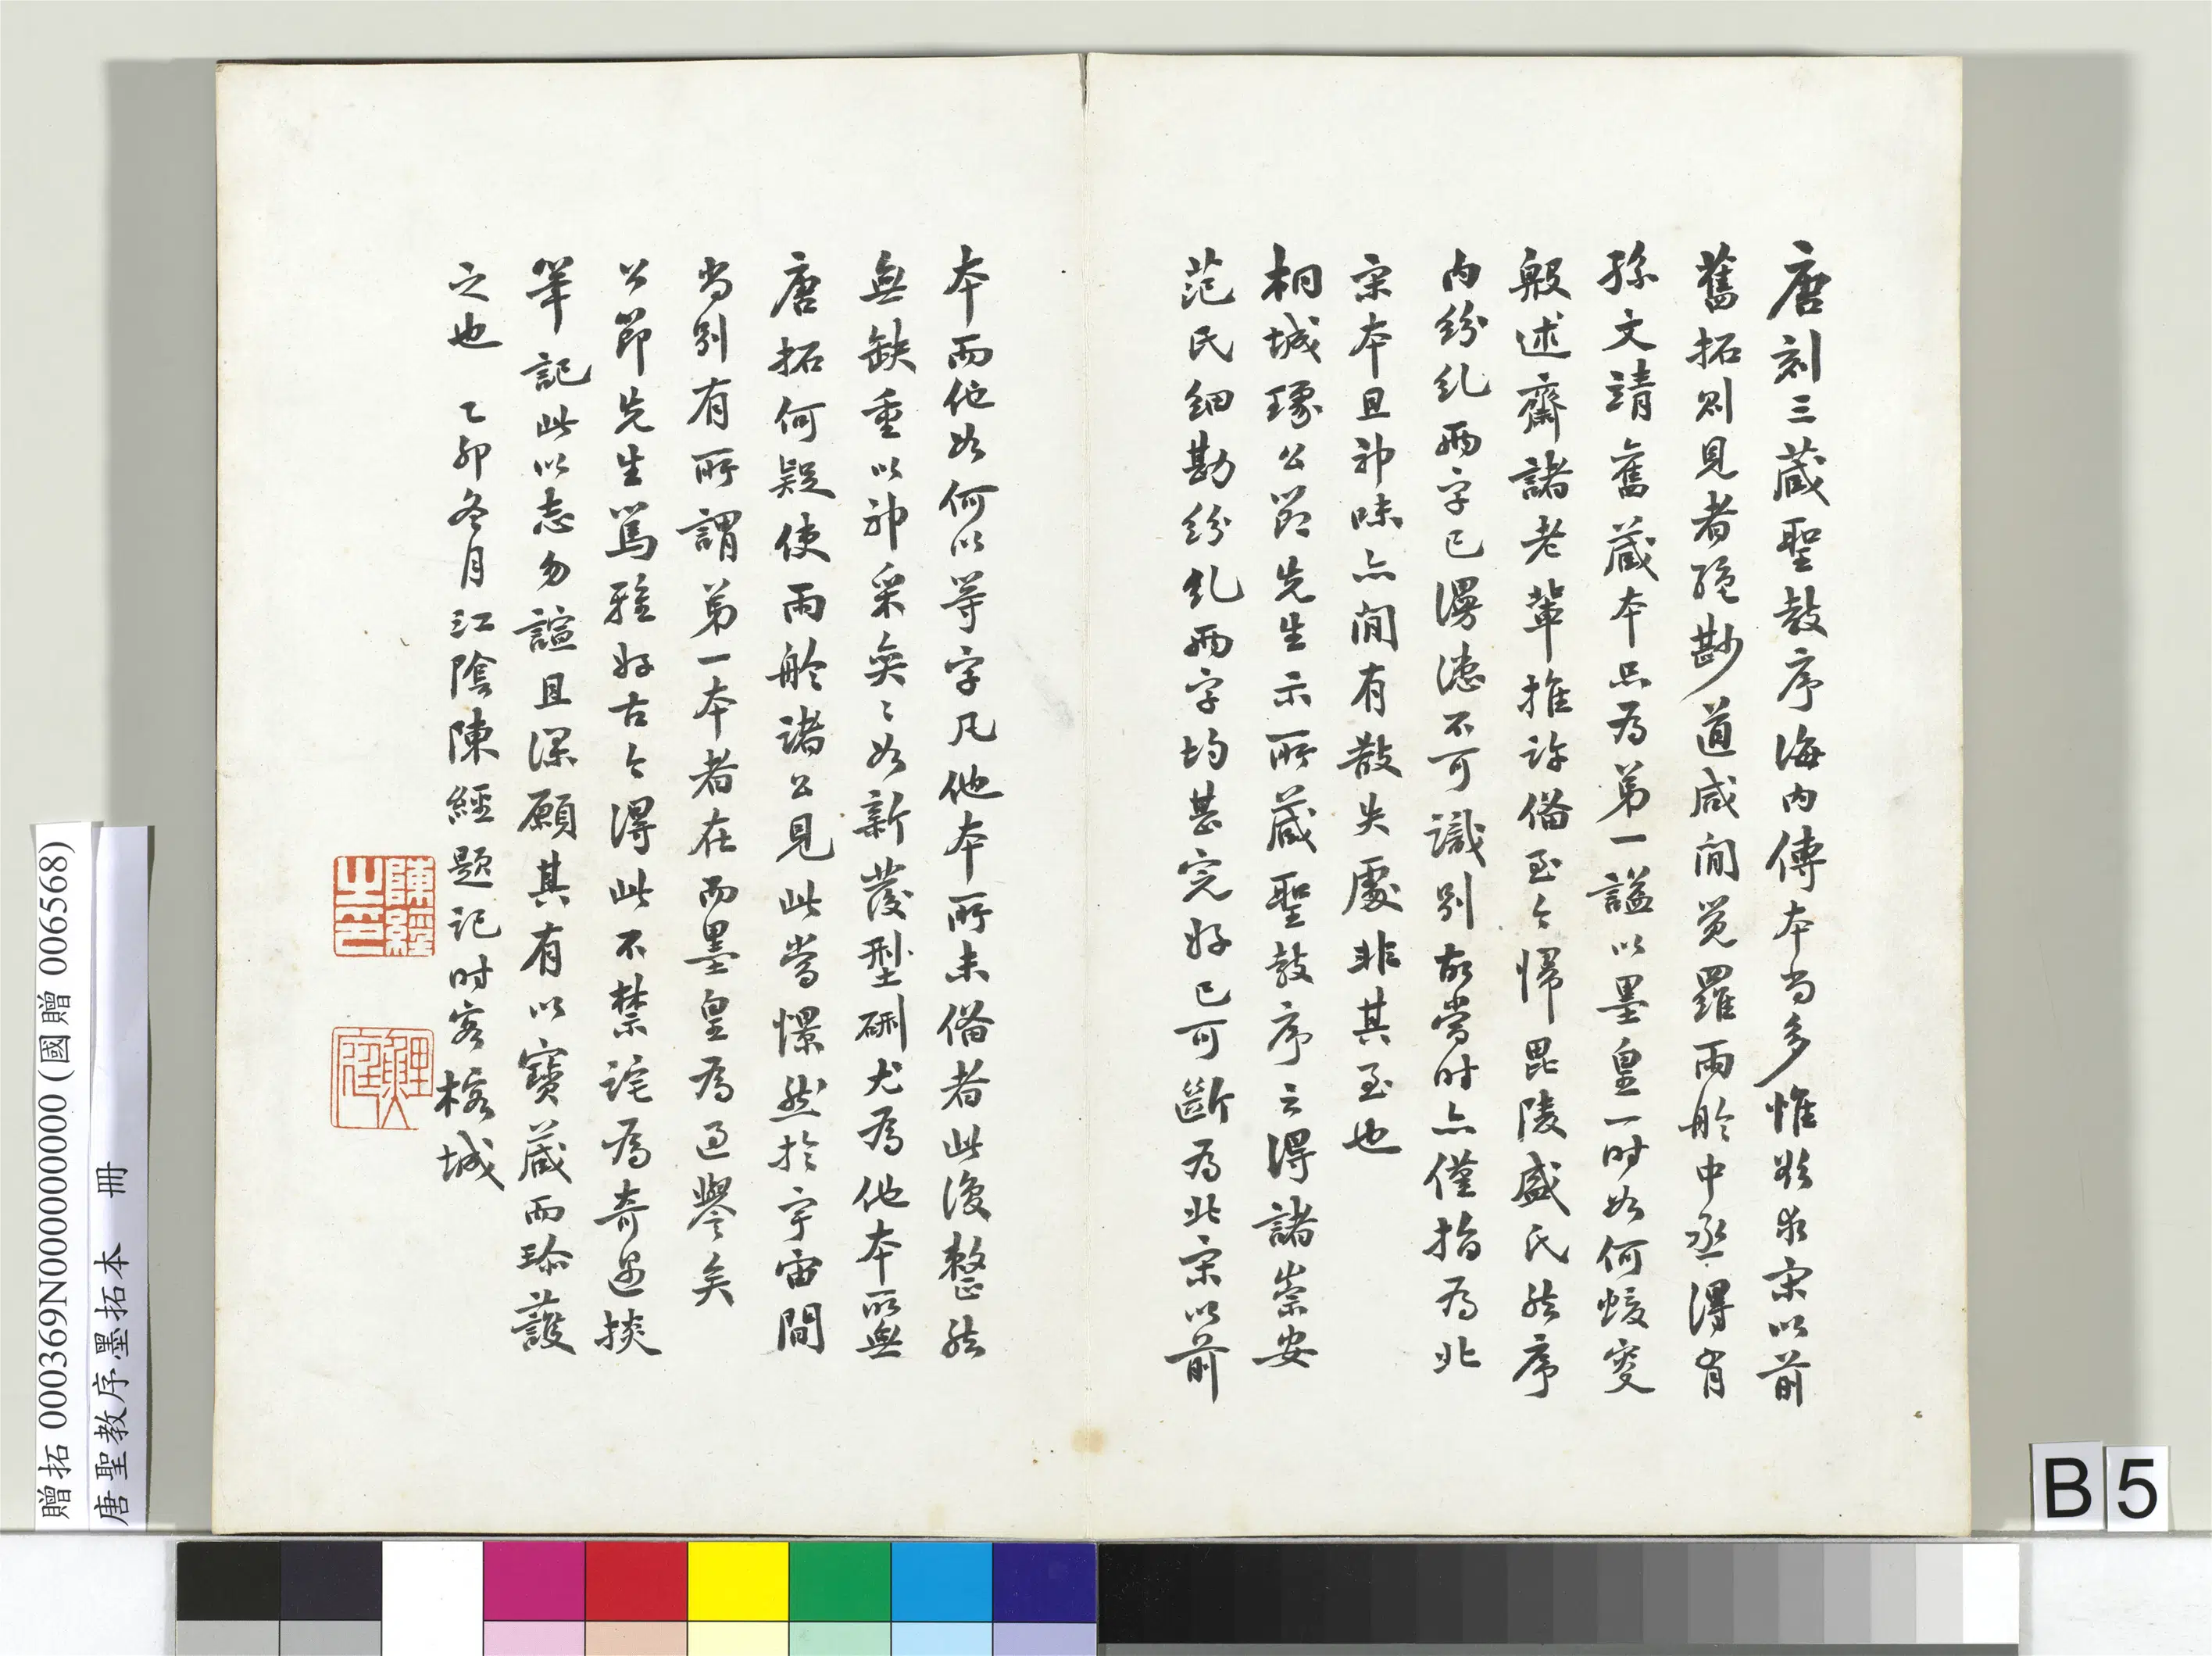 唐刻三藏聖教序海内傳本尚多惟欲求宋以前
舊拓則見者絕尠道咸間覺羅雨舲中丞得有
孫文靖舊藏本品為第一謚以墨皇一时如何蝯叟
殷述齋諸老輩推許備至今歸毘陵盛氏然序
内紛糺兩字已漫漶不可識別故當时亦僅指為北
宋本且神味亦間有散失處非其至也
桐城琢公節先生示所藏聖教序云得諸崇安
范氏細勘紛糺兩字均甚完好已可斷為北宋以前
本而他如何以等字凡他本所未備者此復整然
無缺重以神采奕〻如新發型硎尤為他本所無
唐拓何疑使雨舲諸公見此當憬然於宇宙間
尚別有所謂第一本者在而墨皇為過譽矣
公節先生篤雅好古今得此不禁詫為奇遇掞
筆記此以志勿諠且深願其有以寶藏而珍護
之也 乙卯冬月江陰陳經題記时客榕城
陳經之印
贈拓 000369N000000000 (國贈 006568)
唐聖教序墨拓本 冊
B 5